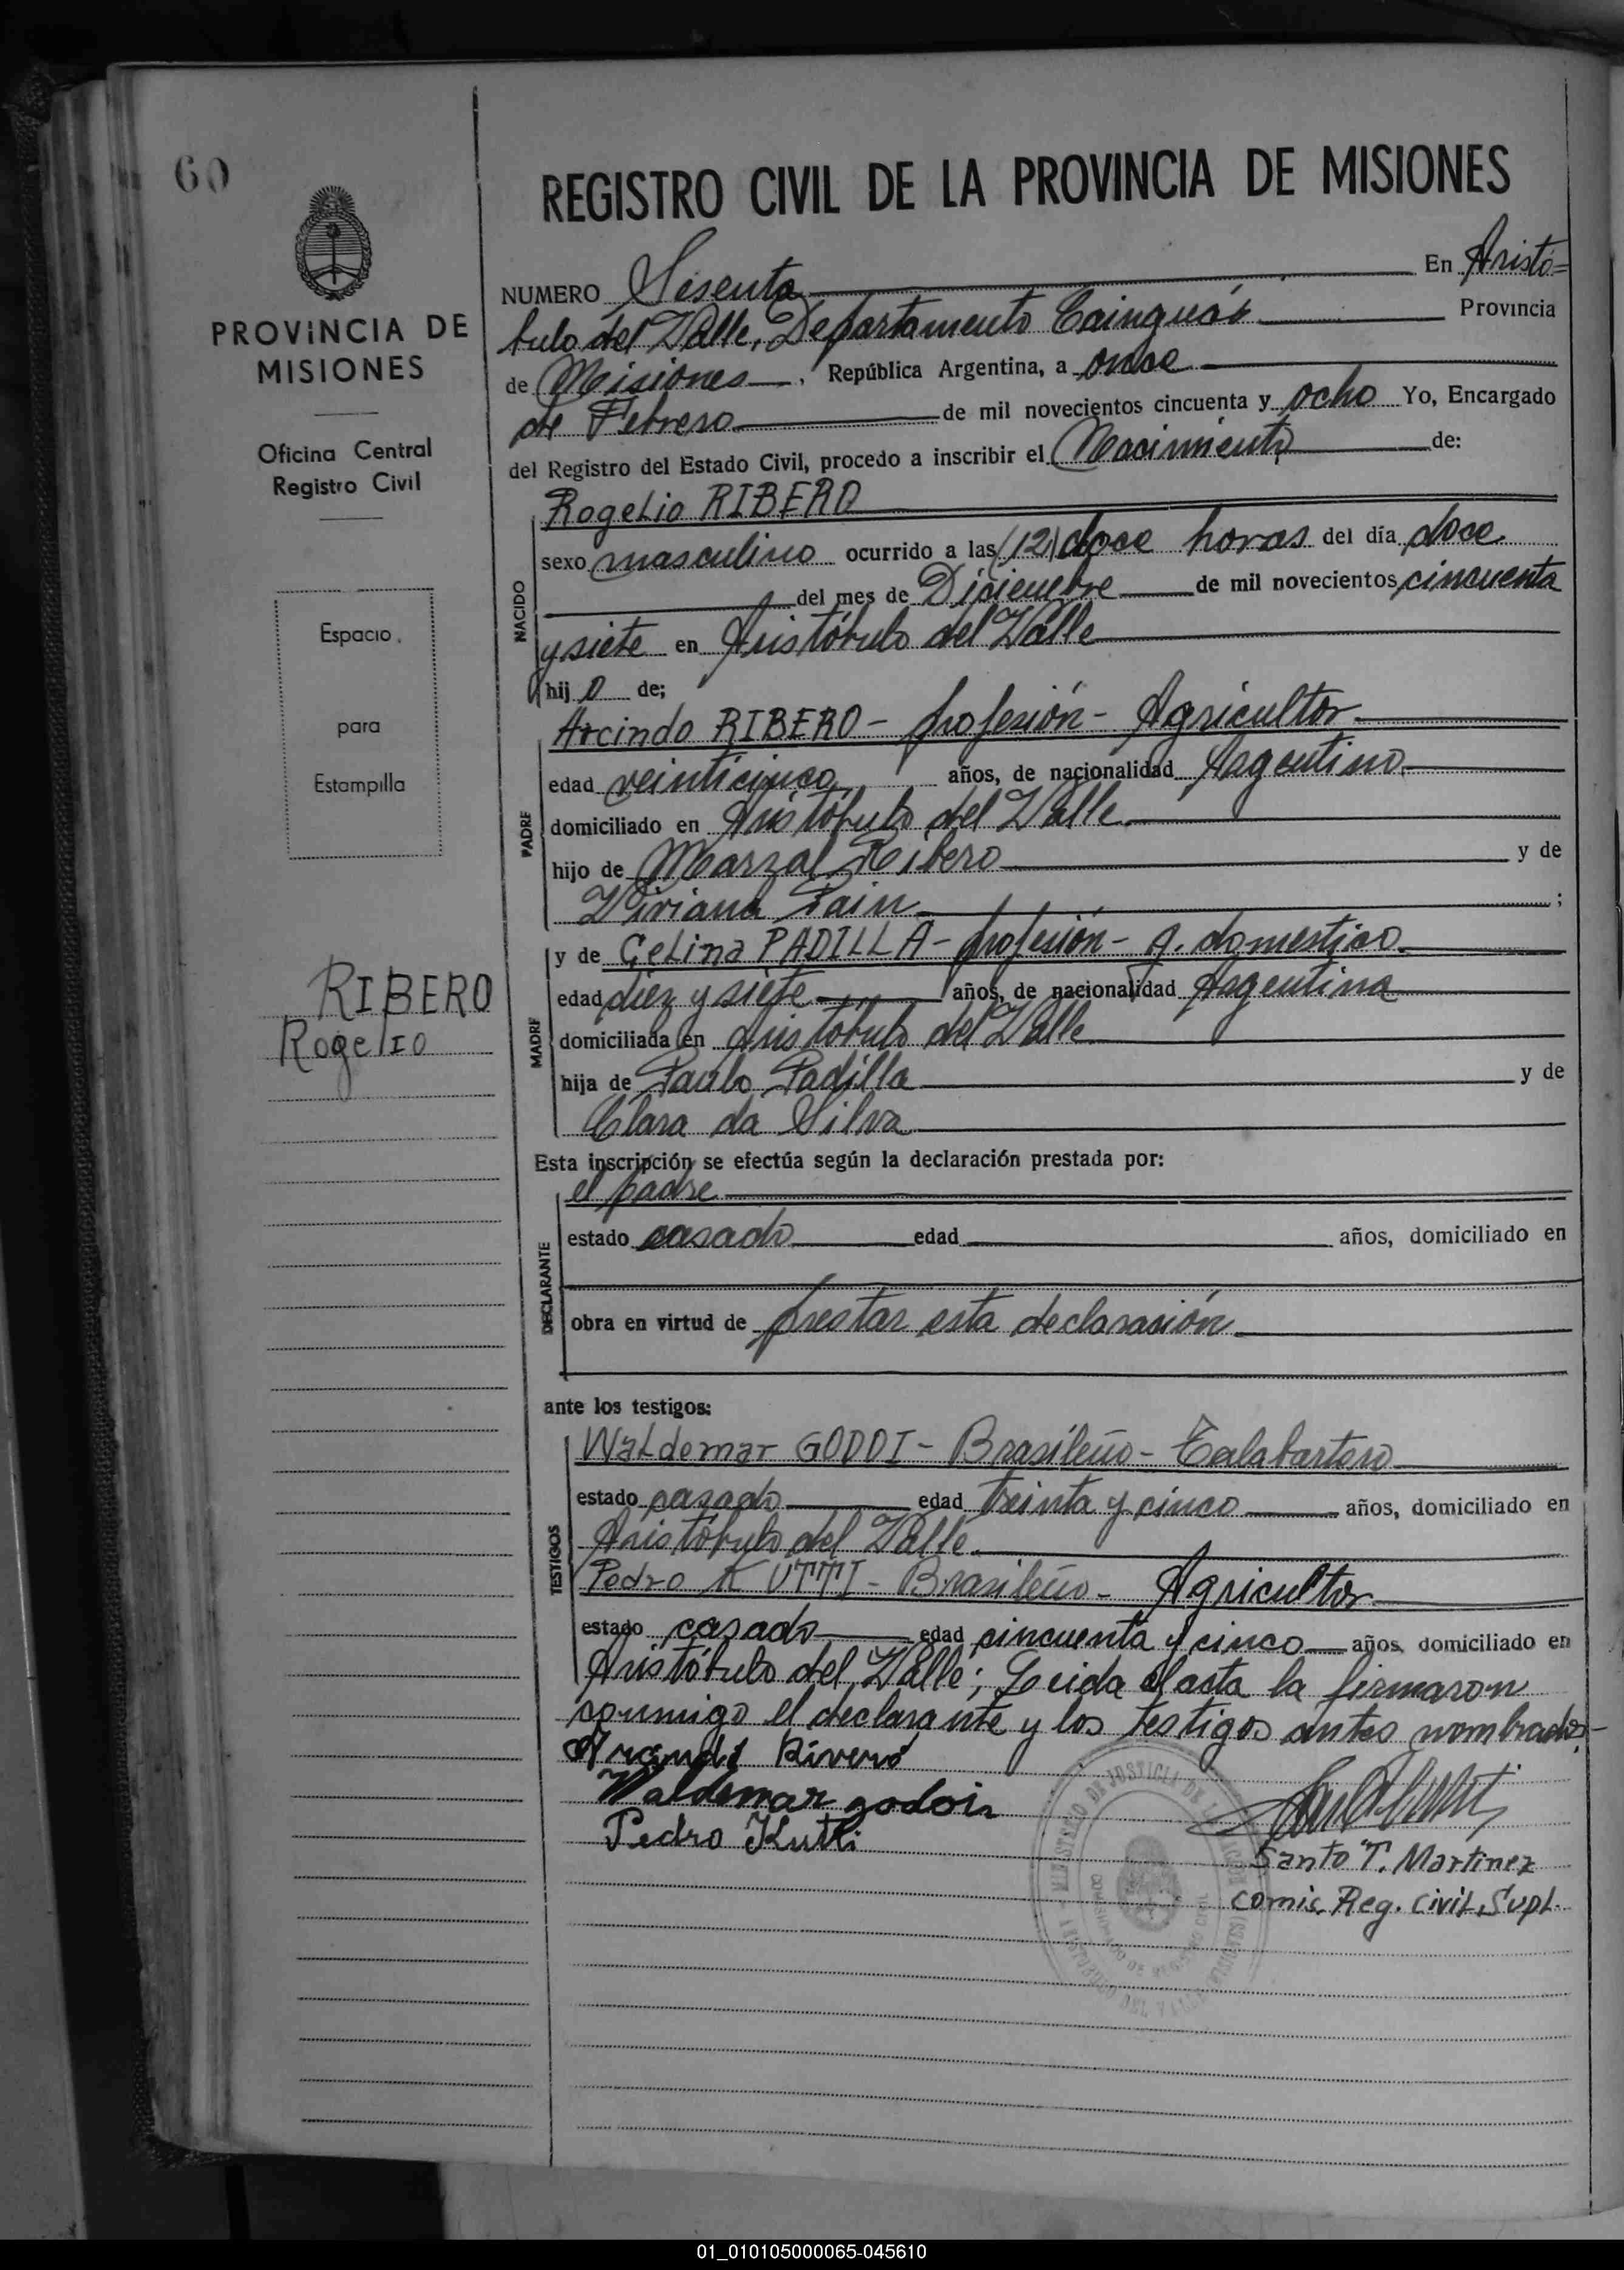 60
PROVINCIA DE
MISIONES
Oficina Central
Registro Civil
Espacio
para
Estampilla
RIBERO
Rogelio
REGISTRO CIVIL DE LA PROVINCIA DE MISIONES
NUMERO Sesenta En Aristó=
bulo del Valle, Departamento Cainguás Provincia
de Misiones, República Argentina, a once
de Febrero de mil novecientos cincuenta y ocho Yo, Encargado
del Registro del Estado Civil, procedo a inscribir el Nacimiento de:
NACIDO
Rogelio RIBERO
sexo masculino ocurrido a las (12) doce horas del día doce
del mes de Diciembre de mil novecientos cincuenta
y siete en Aristóbulo del Valle
hijo de;
PADRE
Arcindo RIBERO - profesión - Agricultor
edad veinticinco años, de nacionalidad Argentino
domiciliado en Aristóbulo del Valle
hijo de Marzal Ribero y de
Viviana Pain ;
MADRE
y de Celina PADILLA - profesión - q. domestico
edad diez y siete años, de nacionalidad Argentina
domiciliada en Aristóbulo del Valle
hija de Paulo Padilla y de
Clara da Silva
Esta inscripción se efectúa según la declaración prestada por:
DECLARANTE
el padre
estado casado edad años, domiciliado en
obra en virtud de prestar esta declaración
ante los testigos:
TESTIGOS
Waldemar GODOI - Brasileño - Talabartero
estado casado edad treinta y cinco años, domiciliado en
Aristóbulo del Valle
Pedro KUTTI - Brasileño - Agricultor
estado casado edad cincuenta y cinco años, domiciliado en
Aristóbulo del Valle; Leida el acta la firmaron
conmigo el declarante y los testigos antes nombrados.-
Rivero
Waldemar godoi
Pedro Kutti
Santo T. Martinez
Comis. Reg. Civil, Supl.
01_010105000065-045610